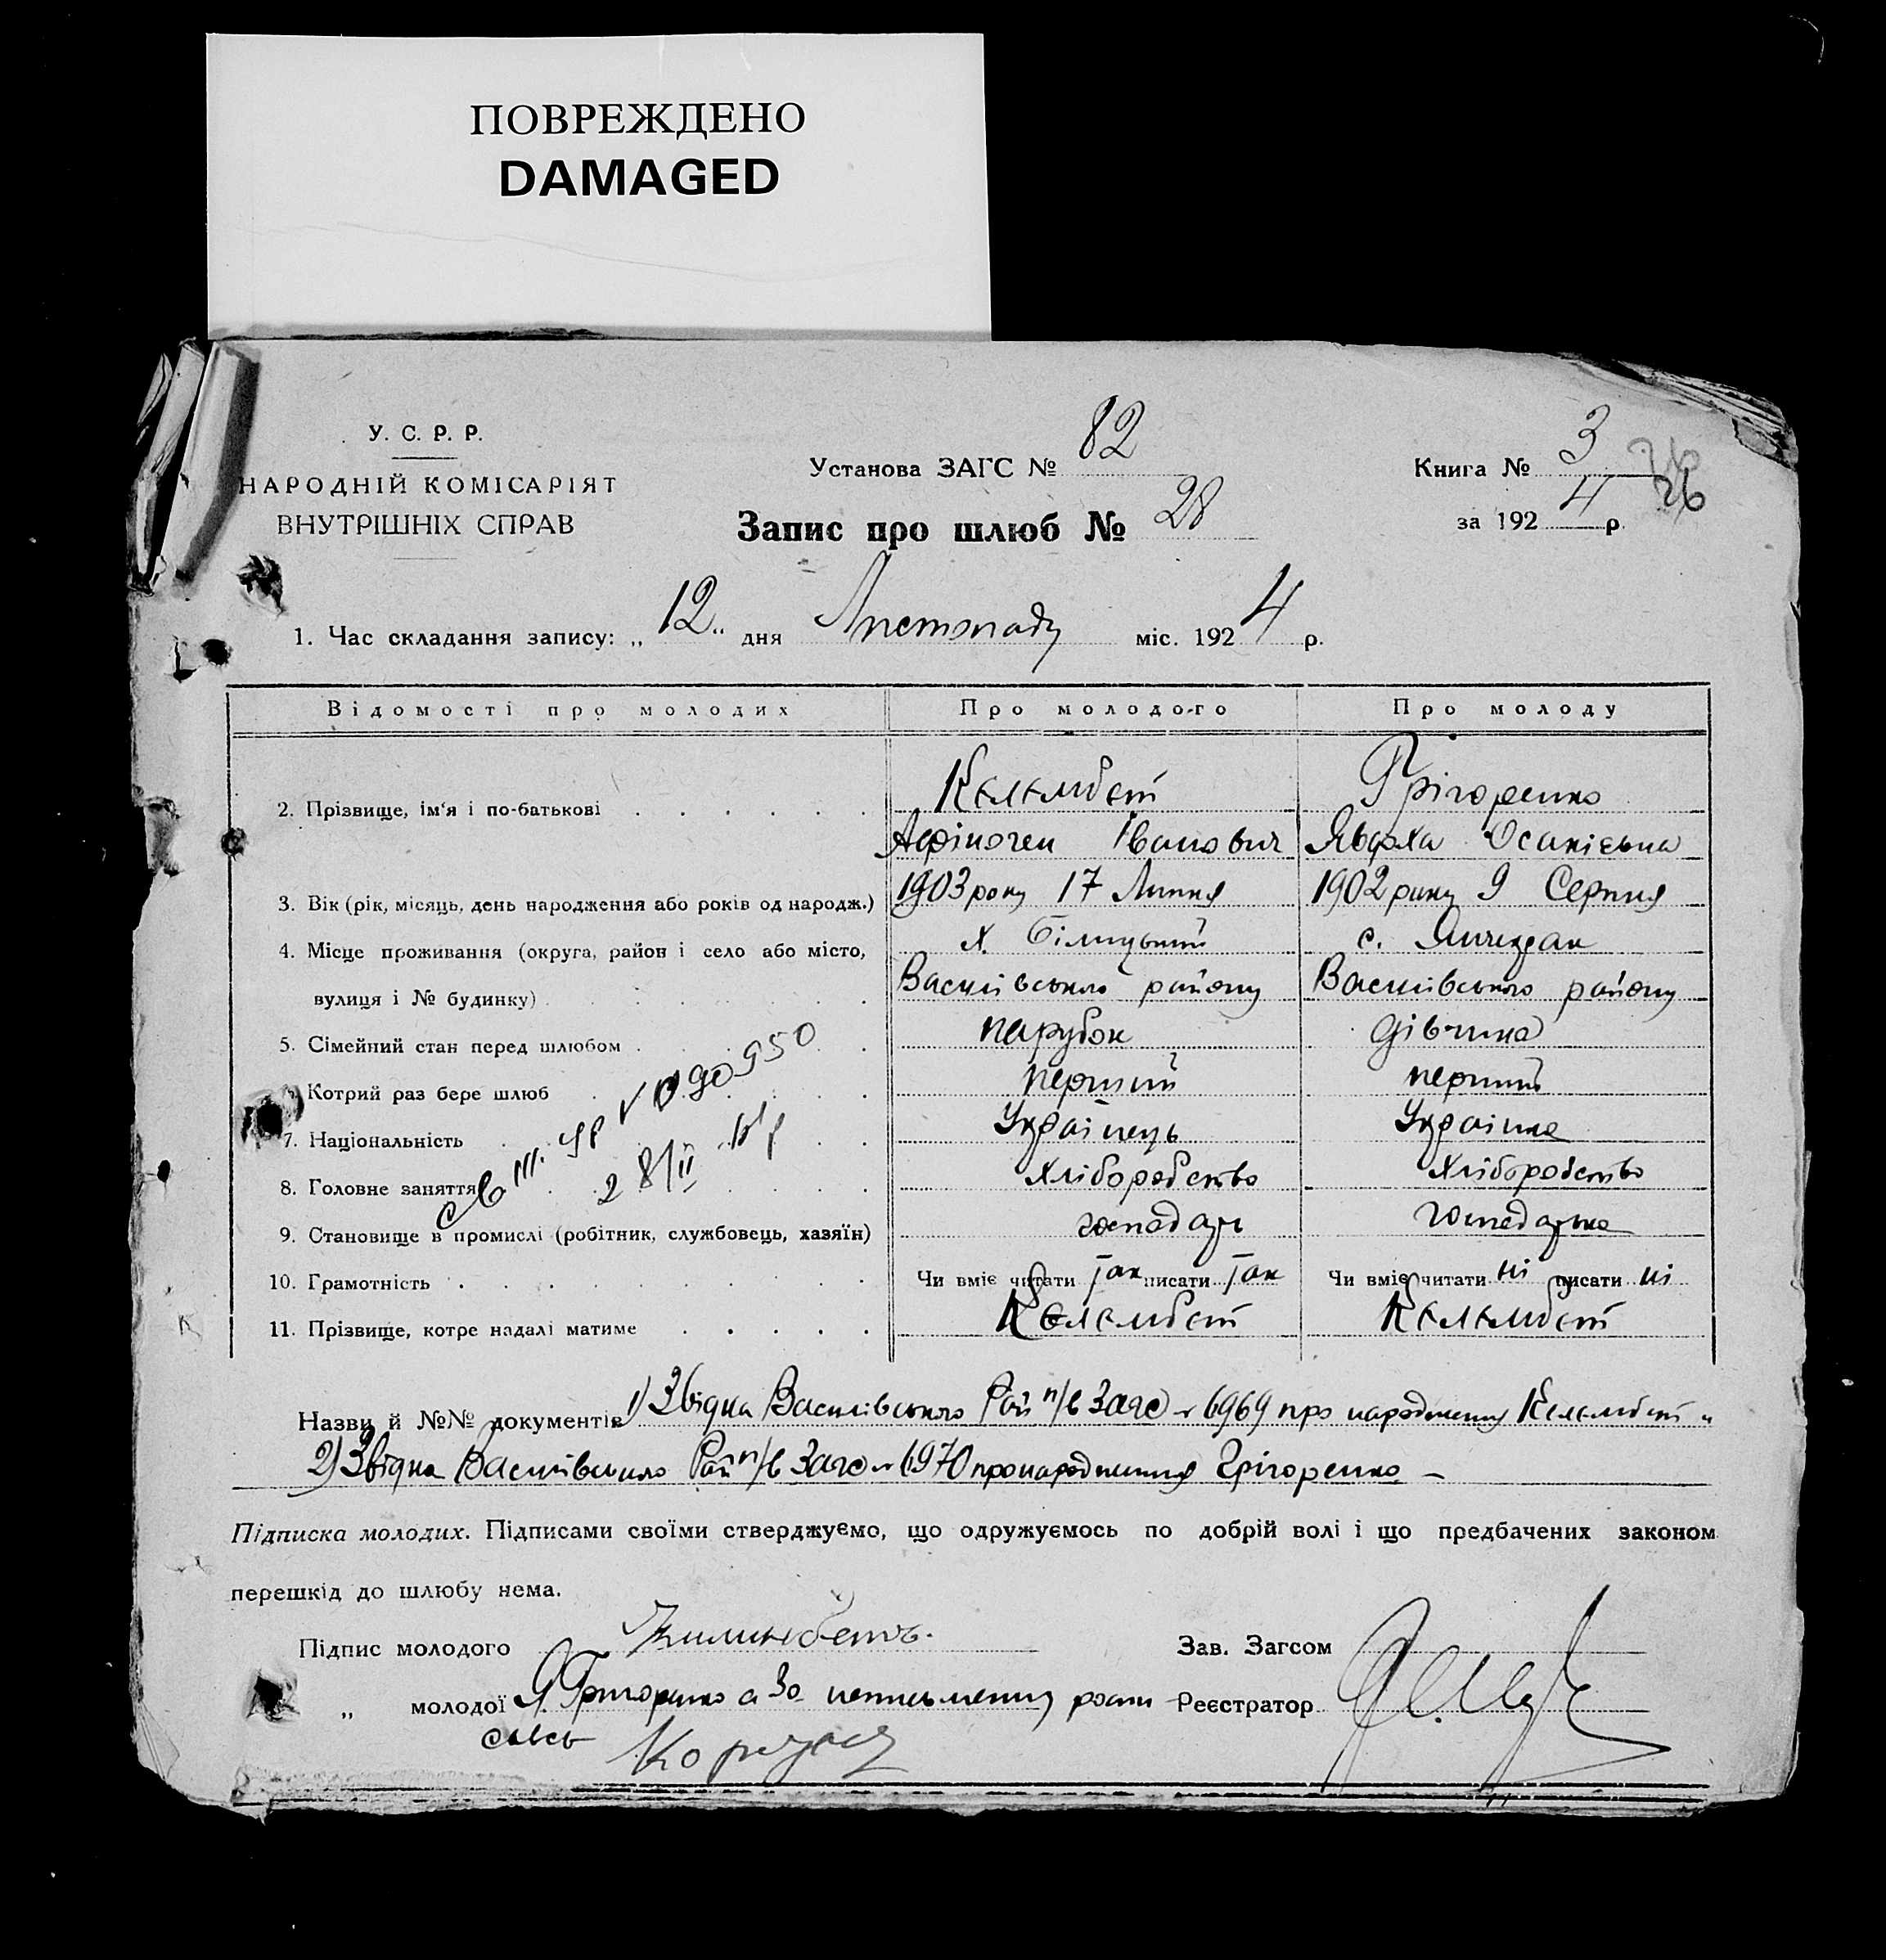 ПОВРЕЖДЕНО
DAMAGED
У. С. Р. Р.
НАРОДНІЙ КОМІСАРІЯТ
ВНУТРІШНІХ СПРАВ
Установа ЗАГС № 82
Запис про шлюб № 28
Книга № 3
26
за 192 4 р.
1. Час складання запису: „ 12 " дня Листопаду міс. 192 4 р.
Відомості про молодих Про молодого Про молоду
2. Прізвище, ім'я і по-батькові Келембет Грігоренко
Афіноген Іванович Явдоха Осипієвна
3. Вік (рік, місяць, день народження або років од народж.) 1903 року 17 Липня 1902 року 9 Серпня
4. Місце проживання (округа, район і село або місто, х. Білицький с.
вулиця і № будинку) Василівського району Василівського району
5. Сімейний стан перед шлюбом парубок дівчина
6. Котрий раз бере шлюб перший перший
7. Національність Українець Українка
8. Головне заняття Хліборобство Хліборобство
9. Становище в промислі (робітник, службовець, хазяїн) господарь господарька
10. Грамотність Чи вміє читати так писати так Чи вміє читати ні писати ні
11. Прізвище, котре надалі матиме Келембет Келембет
090950
28/II
Назви й №№ документів 1) Звідка Василівського Рай п/в Загс № 6969 про народження Келембет и
2) Звідка Василівського Рай п/в Загс № 6970 про народження Грігоренко –
Підписка молодих. Підписами своїми стверджуємо, що одружуємось по добрій волі і що предбачених законом
перешкід до шлюбу нема.
Підпис молодого Килимбетъ. Зав. Загсом
„ молодої Я. Григоренко а за неписьменну Реєстратор